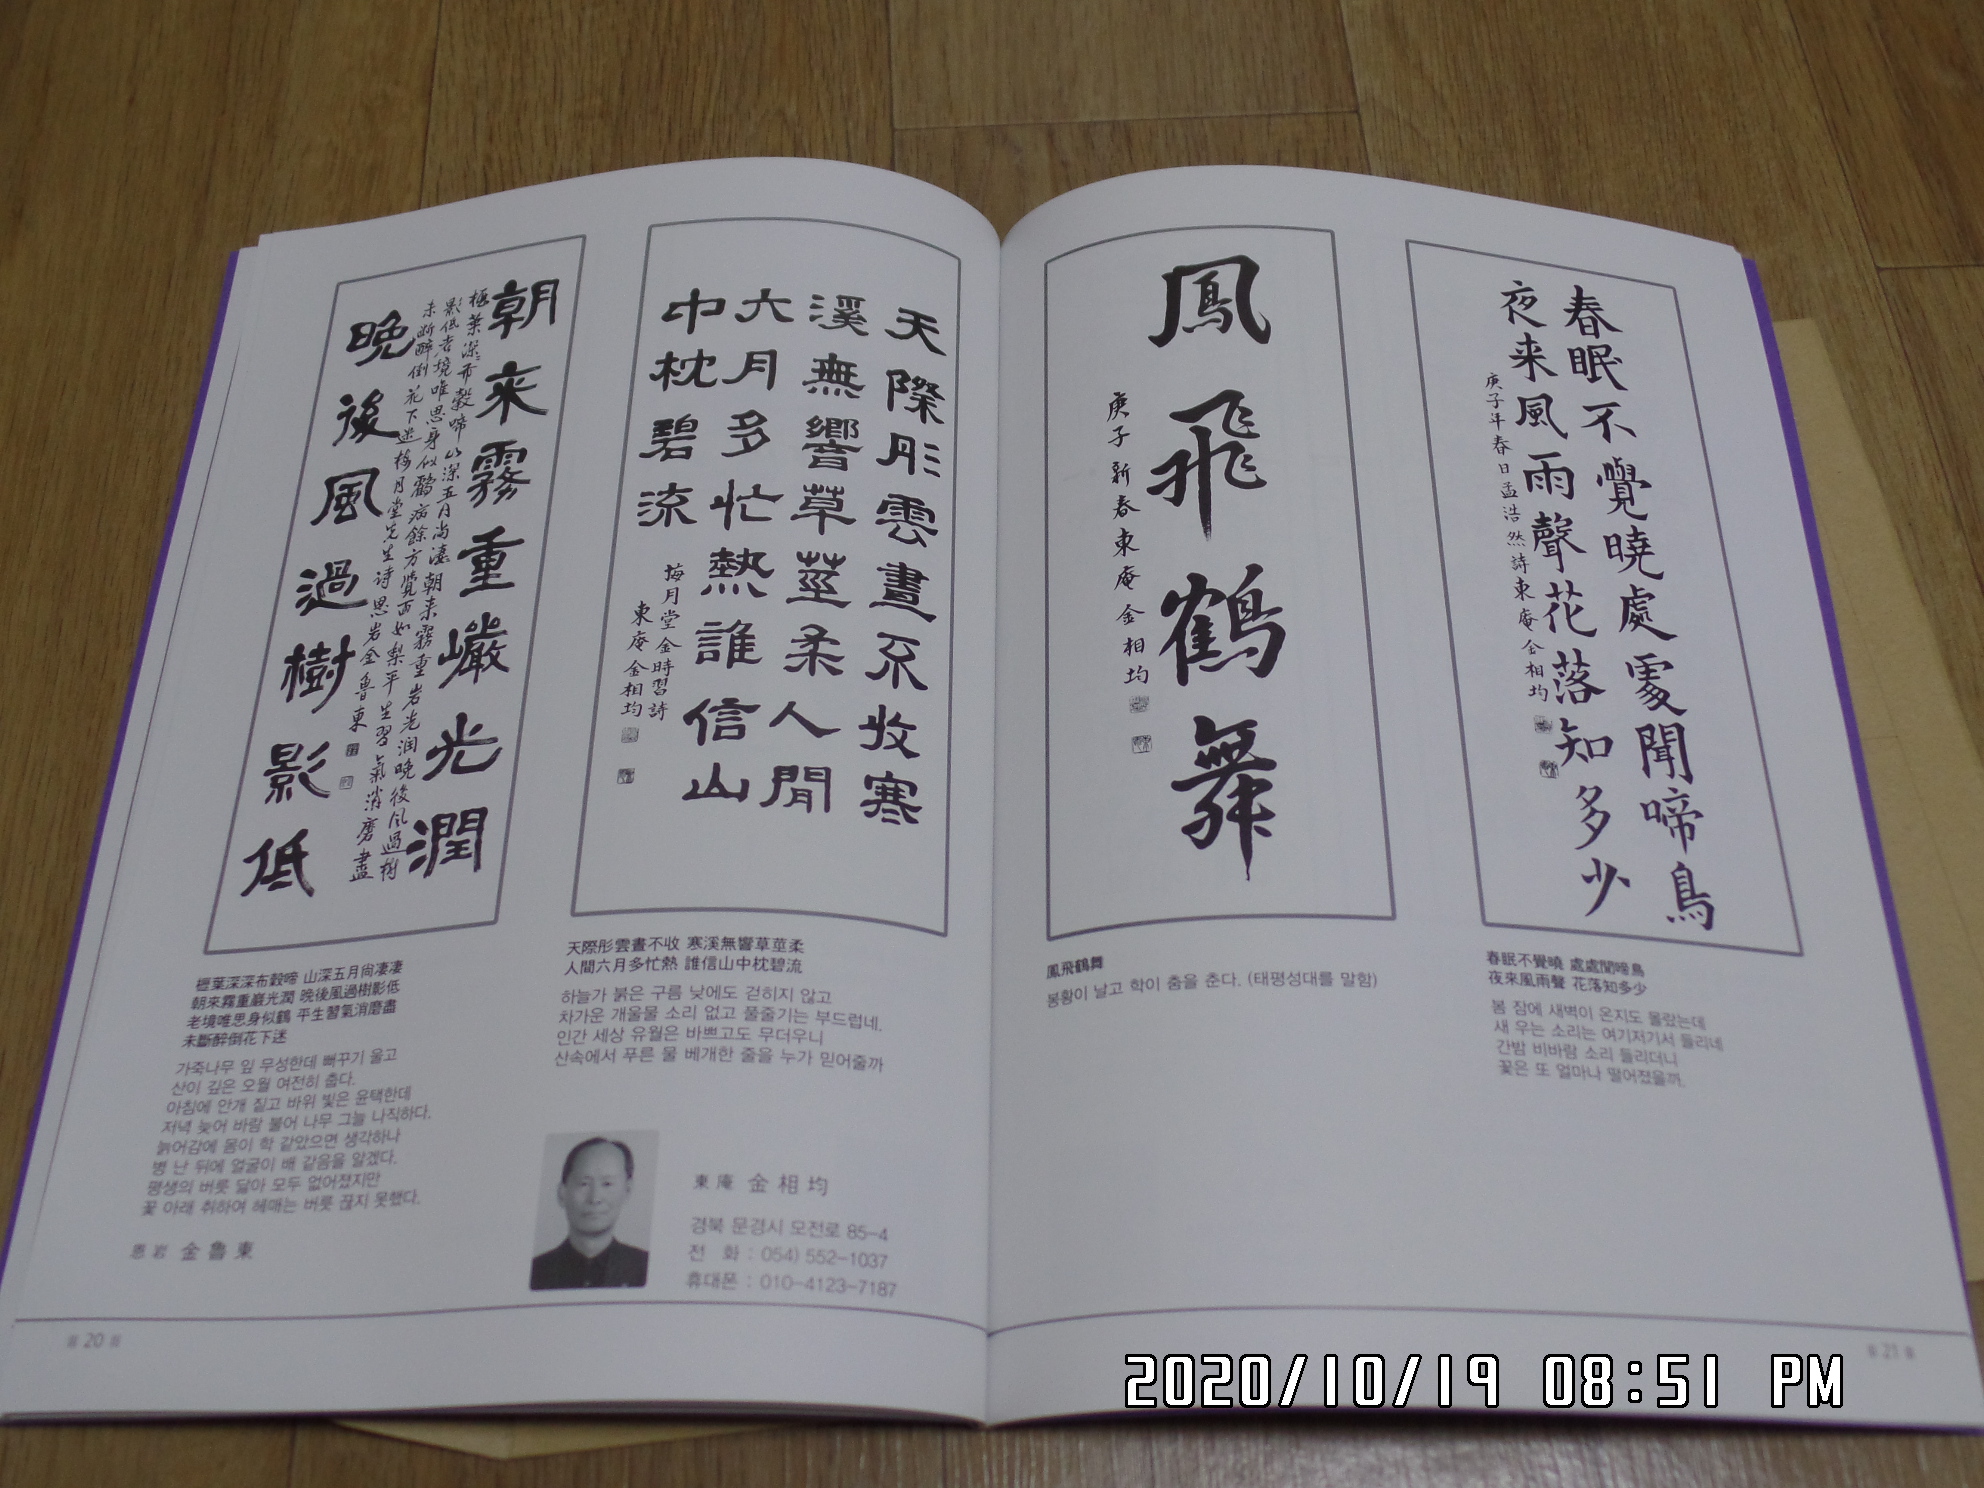 朝來霧重巖光潤
晚後風過樹影低
極葉深深布穀啼 山深五月尚凄凄
朝來霧重巖光潤 晚後風過樹影低
老境唯思身似鶴 平生習氣消磨盡
未斷醉倒花下迷
가죽나무 잎 무성한데 뻐꾸기 울고
산이 깊은 오월 여전히 춥다.
아침에 안개 짙고 바위 빛은 윤택한데
저녁 늦어 바람 불어 나무 그늘 나직하다.
늙어감에 몸이 학 같았으면 생각하나
병 난 뒤에 얼굴이 배 같음을 알겠다.
평생의 버릇 닳아 모두 없어졌지만
꽃 아래 취하여 헤매는 버릇 끊지 못했다.
思岩 金魯東
天際彤雲晝不收寒
溪無響草莖柔人間
六月多忙熱誰信山
中枕碧流
梅月堂金時習詩
東庵金相均
天際彤雲晝不收 寒溪無響草莖柔
人間六月多忙熱 誰信山中枕碧流
하늘가 붉은 구름 낮에도 걷히지 않고
차가운 개울물 소리 없고 풀줄기는 부드럽네.
인간 세상 유월은 바쁘고도 무더우니
산속에서 푸른 물 베개한 줄을 누가 믿어줄까
東庵 金相均
경북 문경시 모전로 85-4
전 화 : 054) 552-1037
휴대폰 : 010-4123-7187
20
鳳飛鶴舞
庚子新春東庵金相均
鳳飛鶴舞
봉황이 날고 학이 춤을 춘다. (태평성대를 말함)
春眠不覺曉處處聞啼鳥
夜来風雨聲花落知多少
庚子年春日孟浩然詩東庵金相均
春眠不覺曉 處處聞啼鳥
夜來風雨聲 花落知多少
봄 잠에 새벽이 온지도 몰랐는데
새 우는 소리는 여기저기서 들리네
간밤 비바람 소리 들리더니
꽃은 또 얼마나 떨어졌을까.
21
2020/10/19 08:51 PM